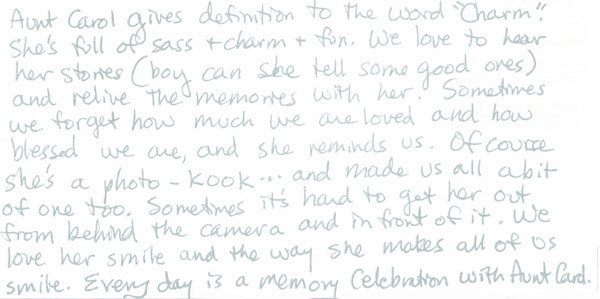 Aunt Carol gives definition to the word "Charm".
She's full of sass + charm + fun. We love to hear
her stories (boy can she tell some good ones)
and relive the memories with her. Sometimes
we forget how much we are loved and how
blessed we are, and she reminds us. Of course
she's a photo-kook... and made us all a bit
of one too. Sometimes it's hard to get her out
from behind the camera and in front of it. We
love her smile and the way she makes all of us
smile. Every day is a memory Celebration with Aunt Carol.